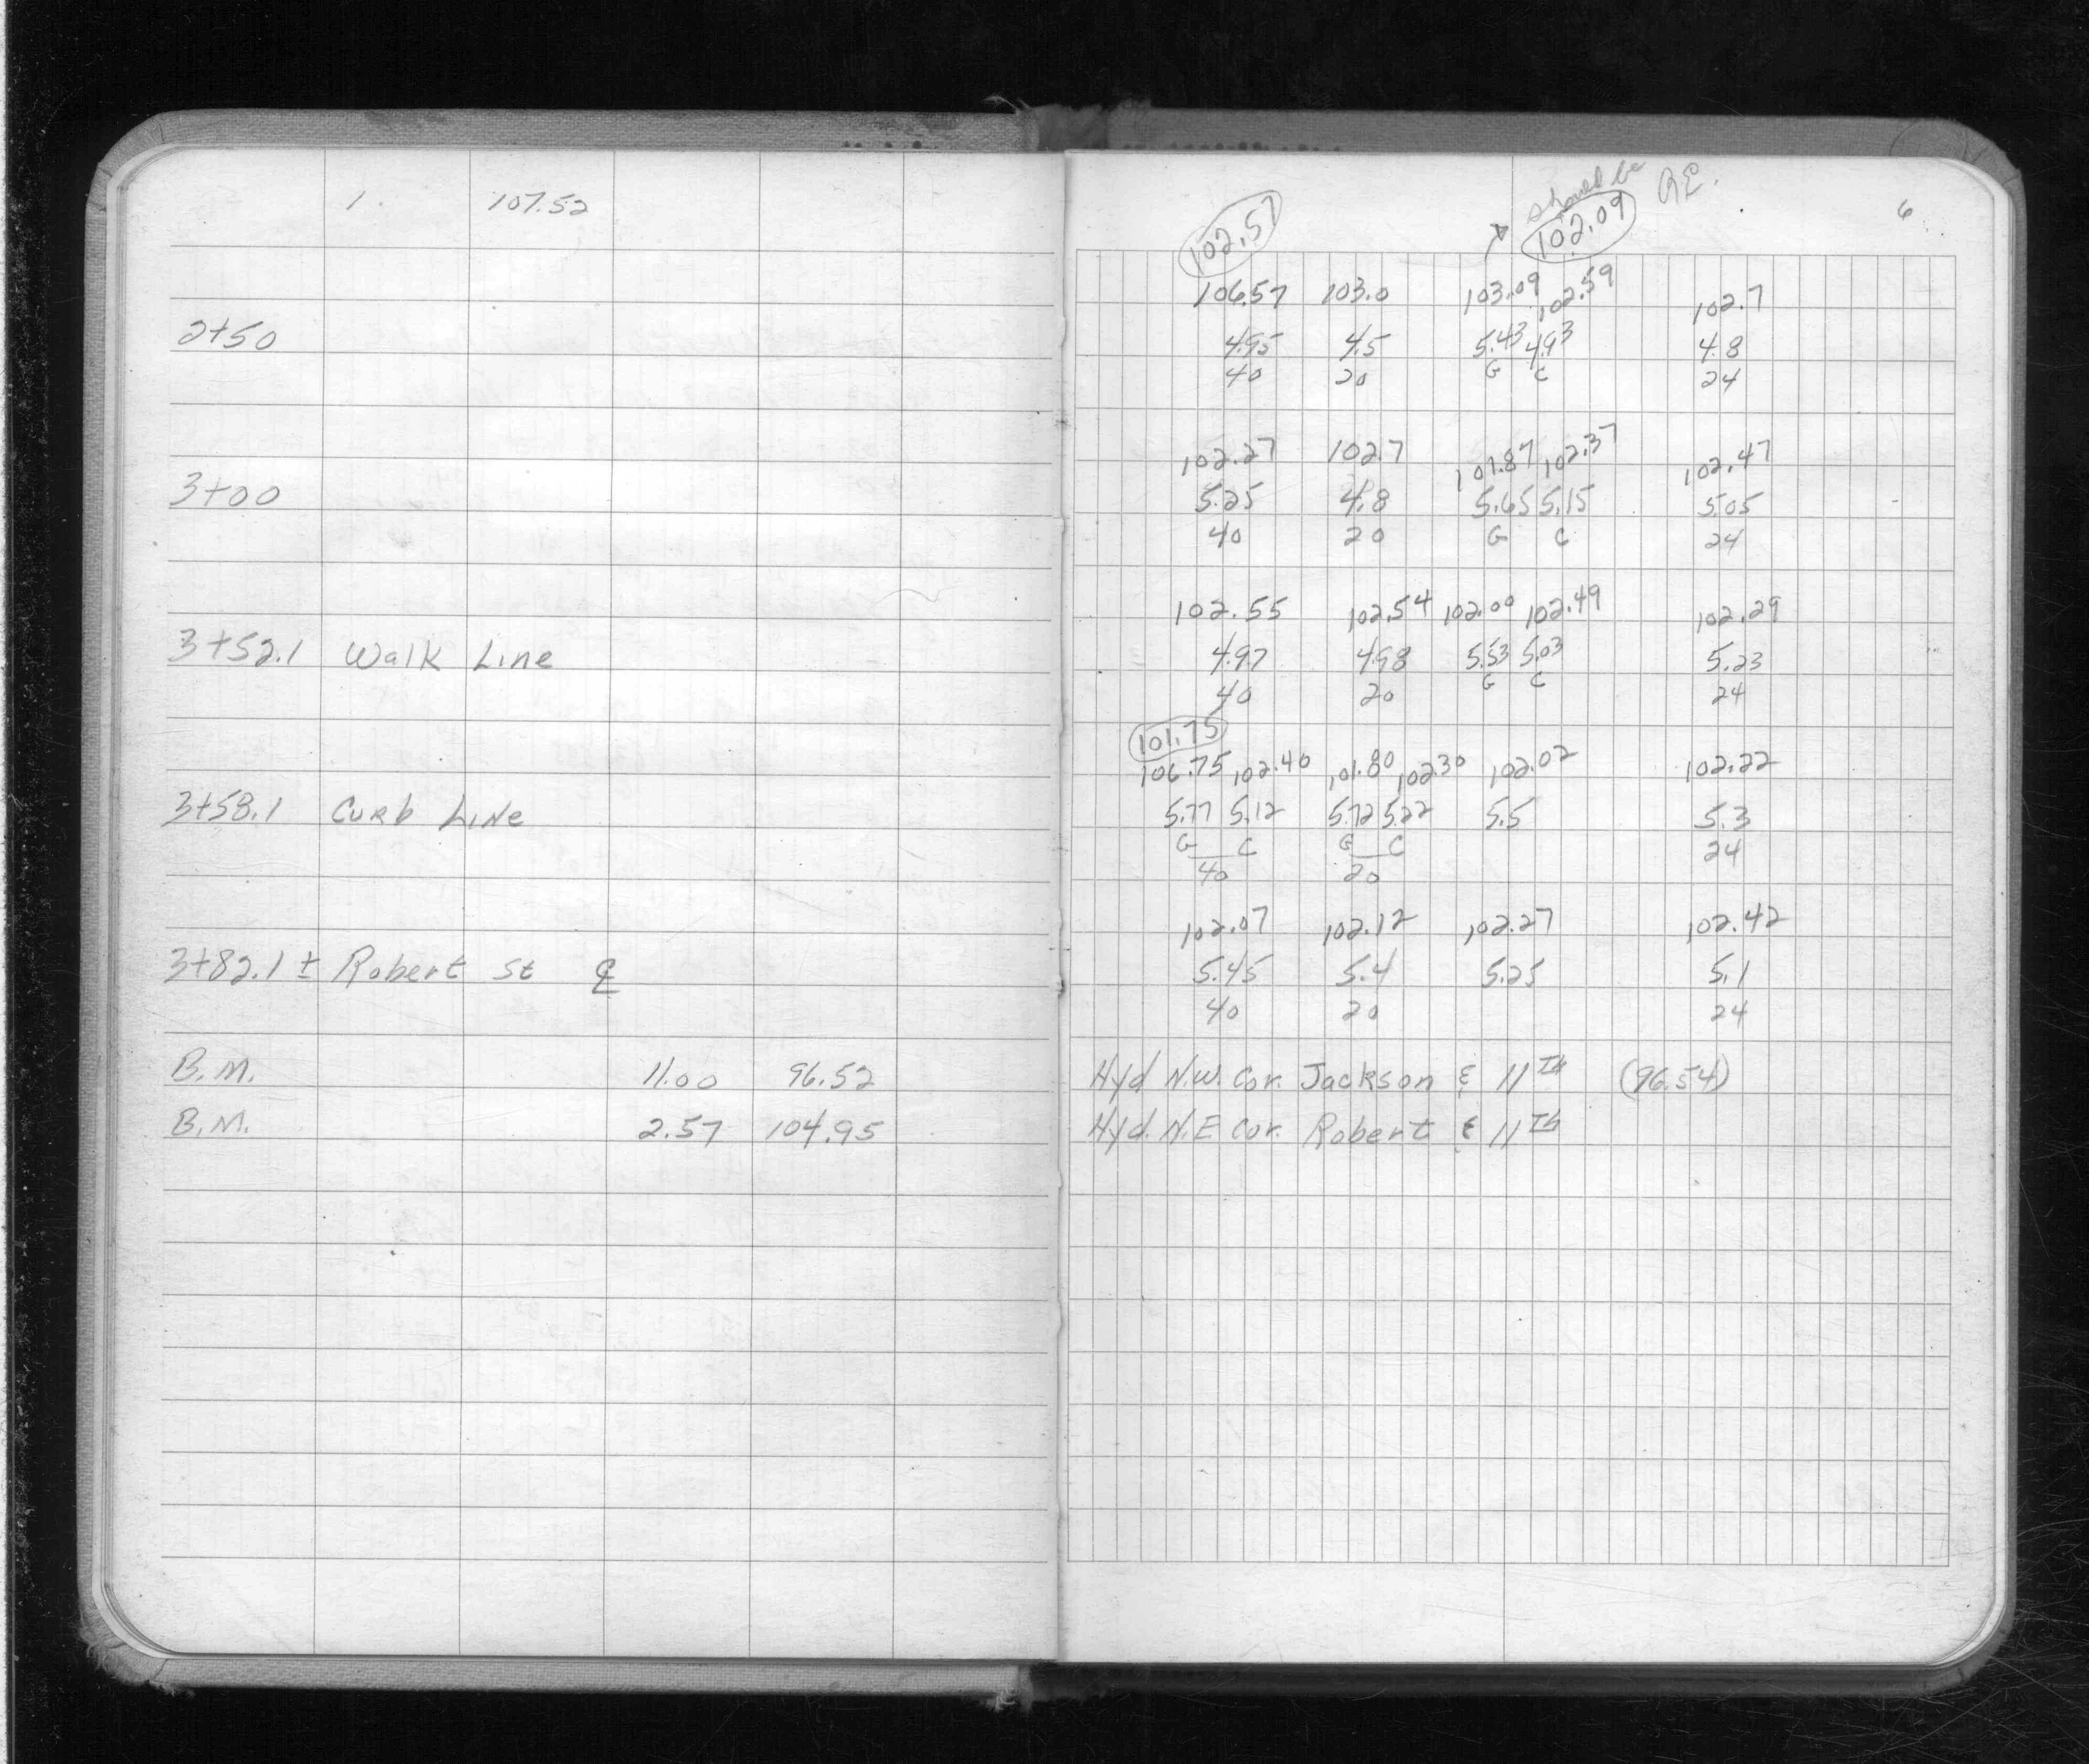 1. 107.52
2+50
3+00
3+52.1 Walk Line
3+58.1 Curb Line
3+82.1 ± Robert St ℄
B.M. 11.00 96.52
B.M. 2.57 104.95
6
should be
102.57 102.09
106.57 103.0 103.09 102.59 102.7
4.95 4.5 5.43 4.93 4.8
40 20 G C 24
102.27 102.7 101.87 102.37 102.47
5.25 4.8 5.65 5.15 5.05
40 20 G C 24
102.55 102.54 102.00 102.49 102.29
4.97 4.98 5.53 5.03 5.23
40 20 G C 24
101.75
106.75 102.40 101.80 102.30 102.02 102.22
5.77 5.12 5.72 5.22 5.5 5.3
G C G C 24
40 20
102.07 102.12 102.27 102.42
5.45 5.4 5.25 5.1
40 20 24
Hyd N.W. Cor. Jackson & 11Th (96.54)
Hyd. N.E Cor. Robert & 11Th